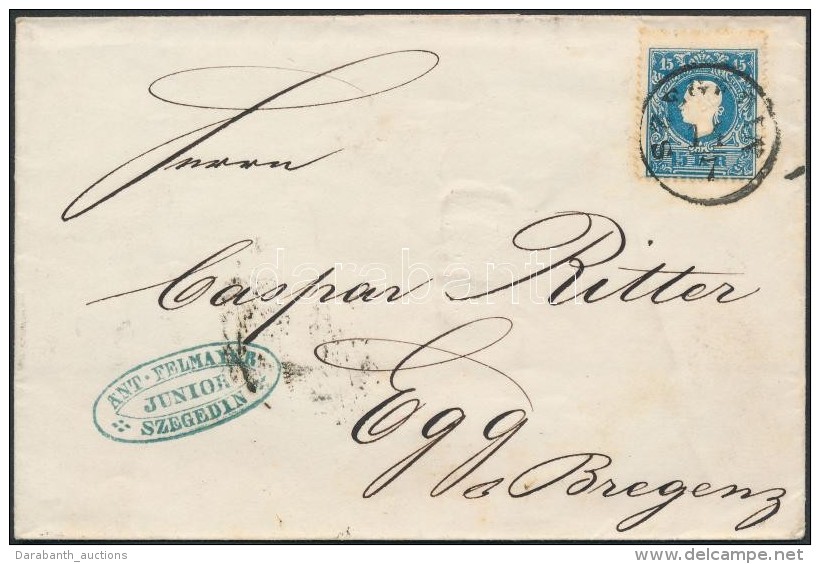 15 15
SZEGEDIN
11
7
15 KR
Herrn
Caspar Ritter
darabanth
ANT. FELMAYER
JUNIOR
SZEGEDIN
Egg
Bregenz
Darabanth_auctions
www.delcampe.net